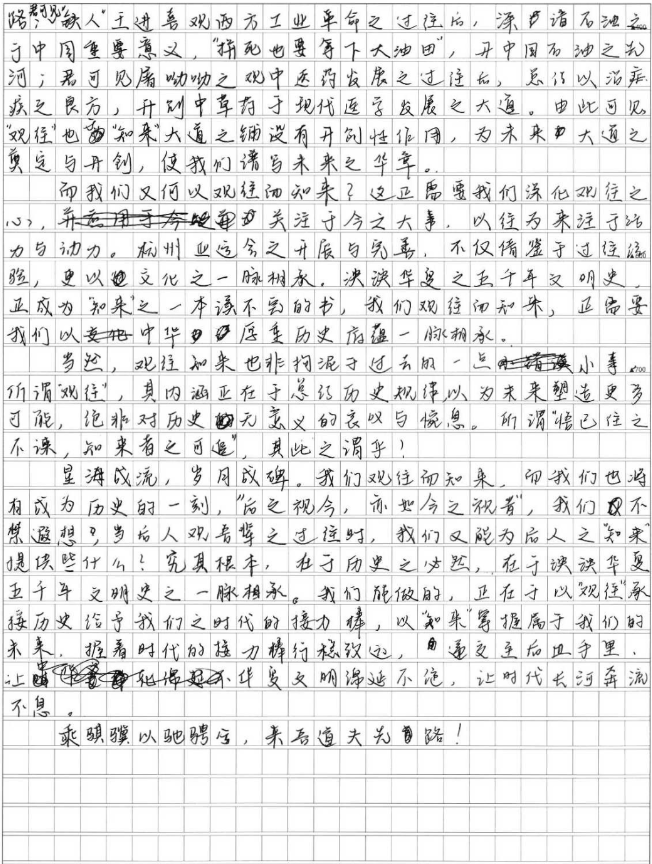 君可见
路；“铁人”王进喜观西方工业革命之过往后，深诸石油之
于中国重要意义，“拼死也要拿下大油田”，开中国石油之先
河；君可见屠呦呦之观中医药发展之过往后，总结以治症
疾之良方，开创中草药于现代医学发展之大道。由此可见
“观往”也“知来”大道之铺设有开创性作用，为未来大道之
奠定与开创，使我们谱写未来之华章。
而我们又何以观往而知来？这正需要我们深化观往之
心，关注于今之大事，以往为来注于活
力与动力。杭州亚运会之开展与完善，不仅借鉴于过往经
验，更以文化之一脉相承。泱泱华夏之五千年文明史，
正成为“知来”之一本读不完的书，我们观往而知来，正需要
我们以中华厚重历史底蕴一脉相承。
当然，观往知来也非拘泥于过去的一点小事，
所谓“观往”，其内涵正在于总结历史规律以为未来塑造更多
可能，绝非对历史无意义的哀叹与惋息。所谓“悟已往之
不谏，知来者之可追”，其此之谓乎！
星海成流，岁月成碑。我们观往而知来，而我们也将
有成为历史的一刻，“后之视今，亦如今之视昔”，我们不
禁遐想，当后人观吾辈之过往时，我们又能为后人之“知来”
提供些什么？究其根本，在于历史之必然，在于泱泱华夏
五千年文明史之一脉相承。我们能做的，正在于以“观往”承
接历史给予我们之时代的接力棒，以“知来”掌握属于我们的
未来，握着时代的接力棒行稳致远，递交至后世手里，
让华夏文明绵延不绝，让时代长河奔流
不息。
乘骐骥以驰骋兮，来吾道夫先路！